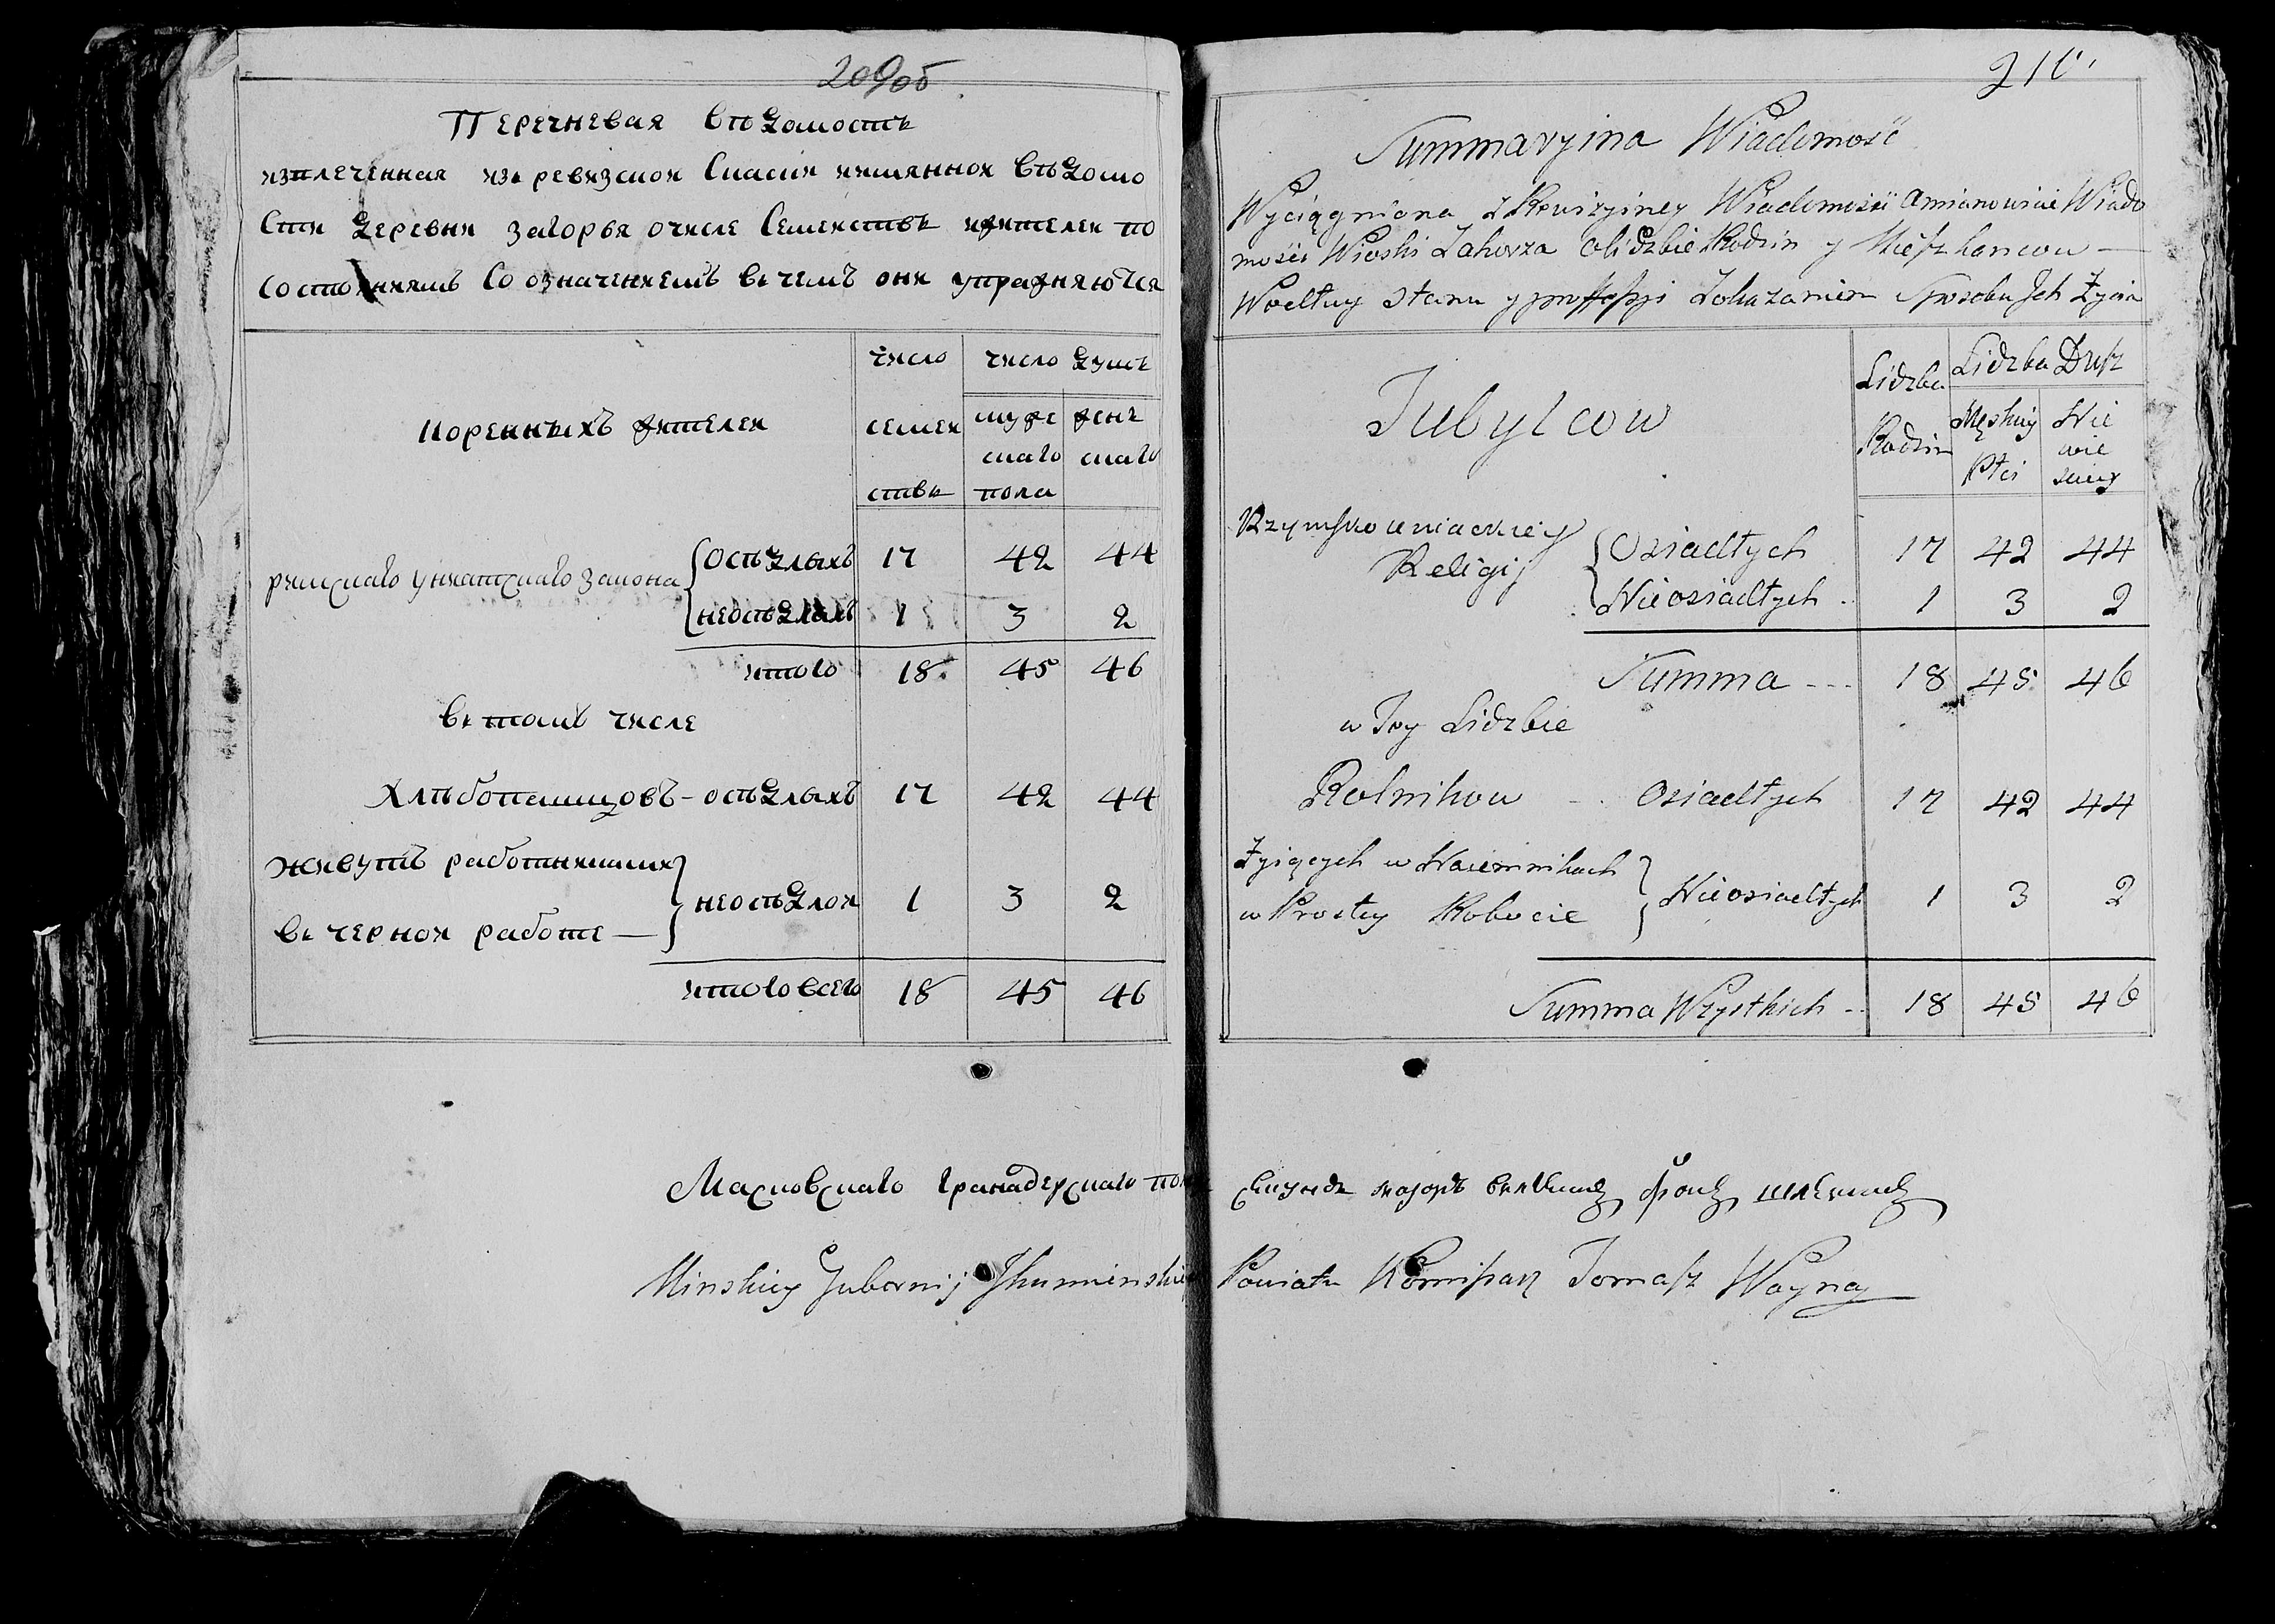 209об
Перечневая вѣдомость
извлеченная изъ ревизской Сказки имянной вѣдомо
сти деревни Загорья о числе Семействъ и жителей по
состояниямъ со означениемъ въ чемъ они упражняются
Коренныхъ жителей
число семействъ
число душъ
мужескаго пола
женскаго
римскаго униатскаго закона
осѣдлыхъ 17 42 44
неосѣдлыхъ 1 3 2
итого 18 45 46
въ томъ числе
Хлѣбопашцовъ - осѣдлыхъ 17 42 44
Живутъ работниками
въ черной работе —
неосѣдлой 1 3 2
итого всего 18 45 46
210
Summaryjna Wiadomość
Wyciągniona z Rewizyiney Wiadomości Amianowicie Wiado
mości Wioski Zahorza o lidzbie Rodzin y Mieszkancow —
Wedłuy Stanu y proffessyi Zokazaniem Sposobu Jch Życia
Tubylcow
Lidzba Rodzin
Lidzba Dusz
Męskiey Płci
Niewiesciey
Rzymsko uniackiey
Religij
Osiadłych 17 42 44
Nieosiadłych 1 3 2
Summa --- 18 45 46
w Tey Lidzbie
Rolnikow - Osiadłych 17 42 44
Żyiących w Naiemnikach
w Prostey Robocie
Nieosiadłych 1 3 2
Summa Wszystkich -- 18 45 46
Московскаго гранадерскаго пол Секундъ маiоръ
Minskiey Gubernij Jhumienskie Powiatu Komisarz Tomasz Wayna